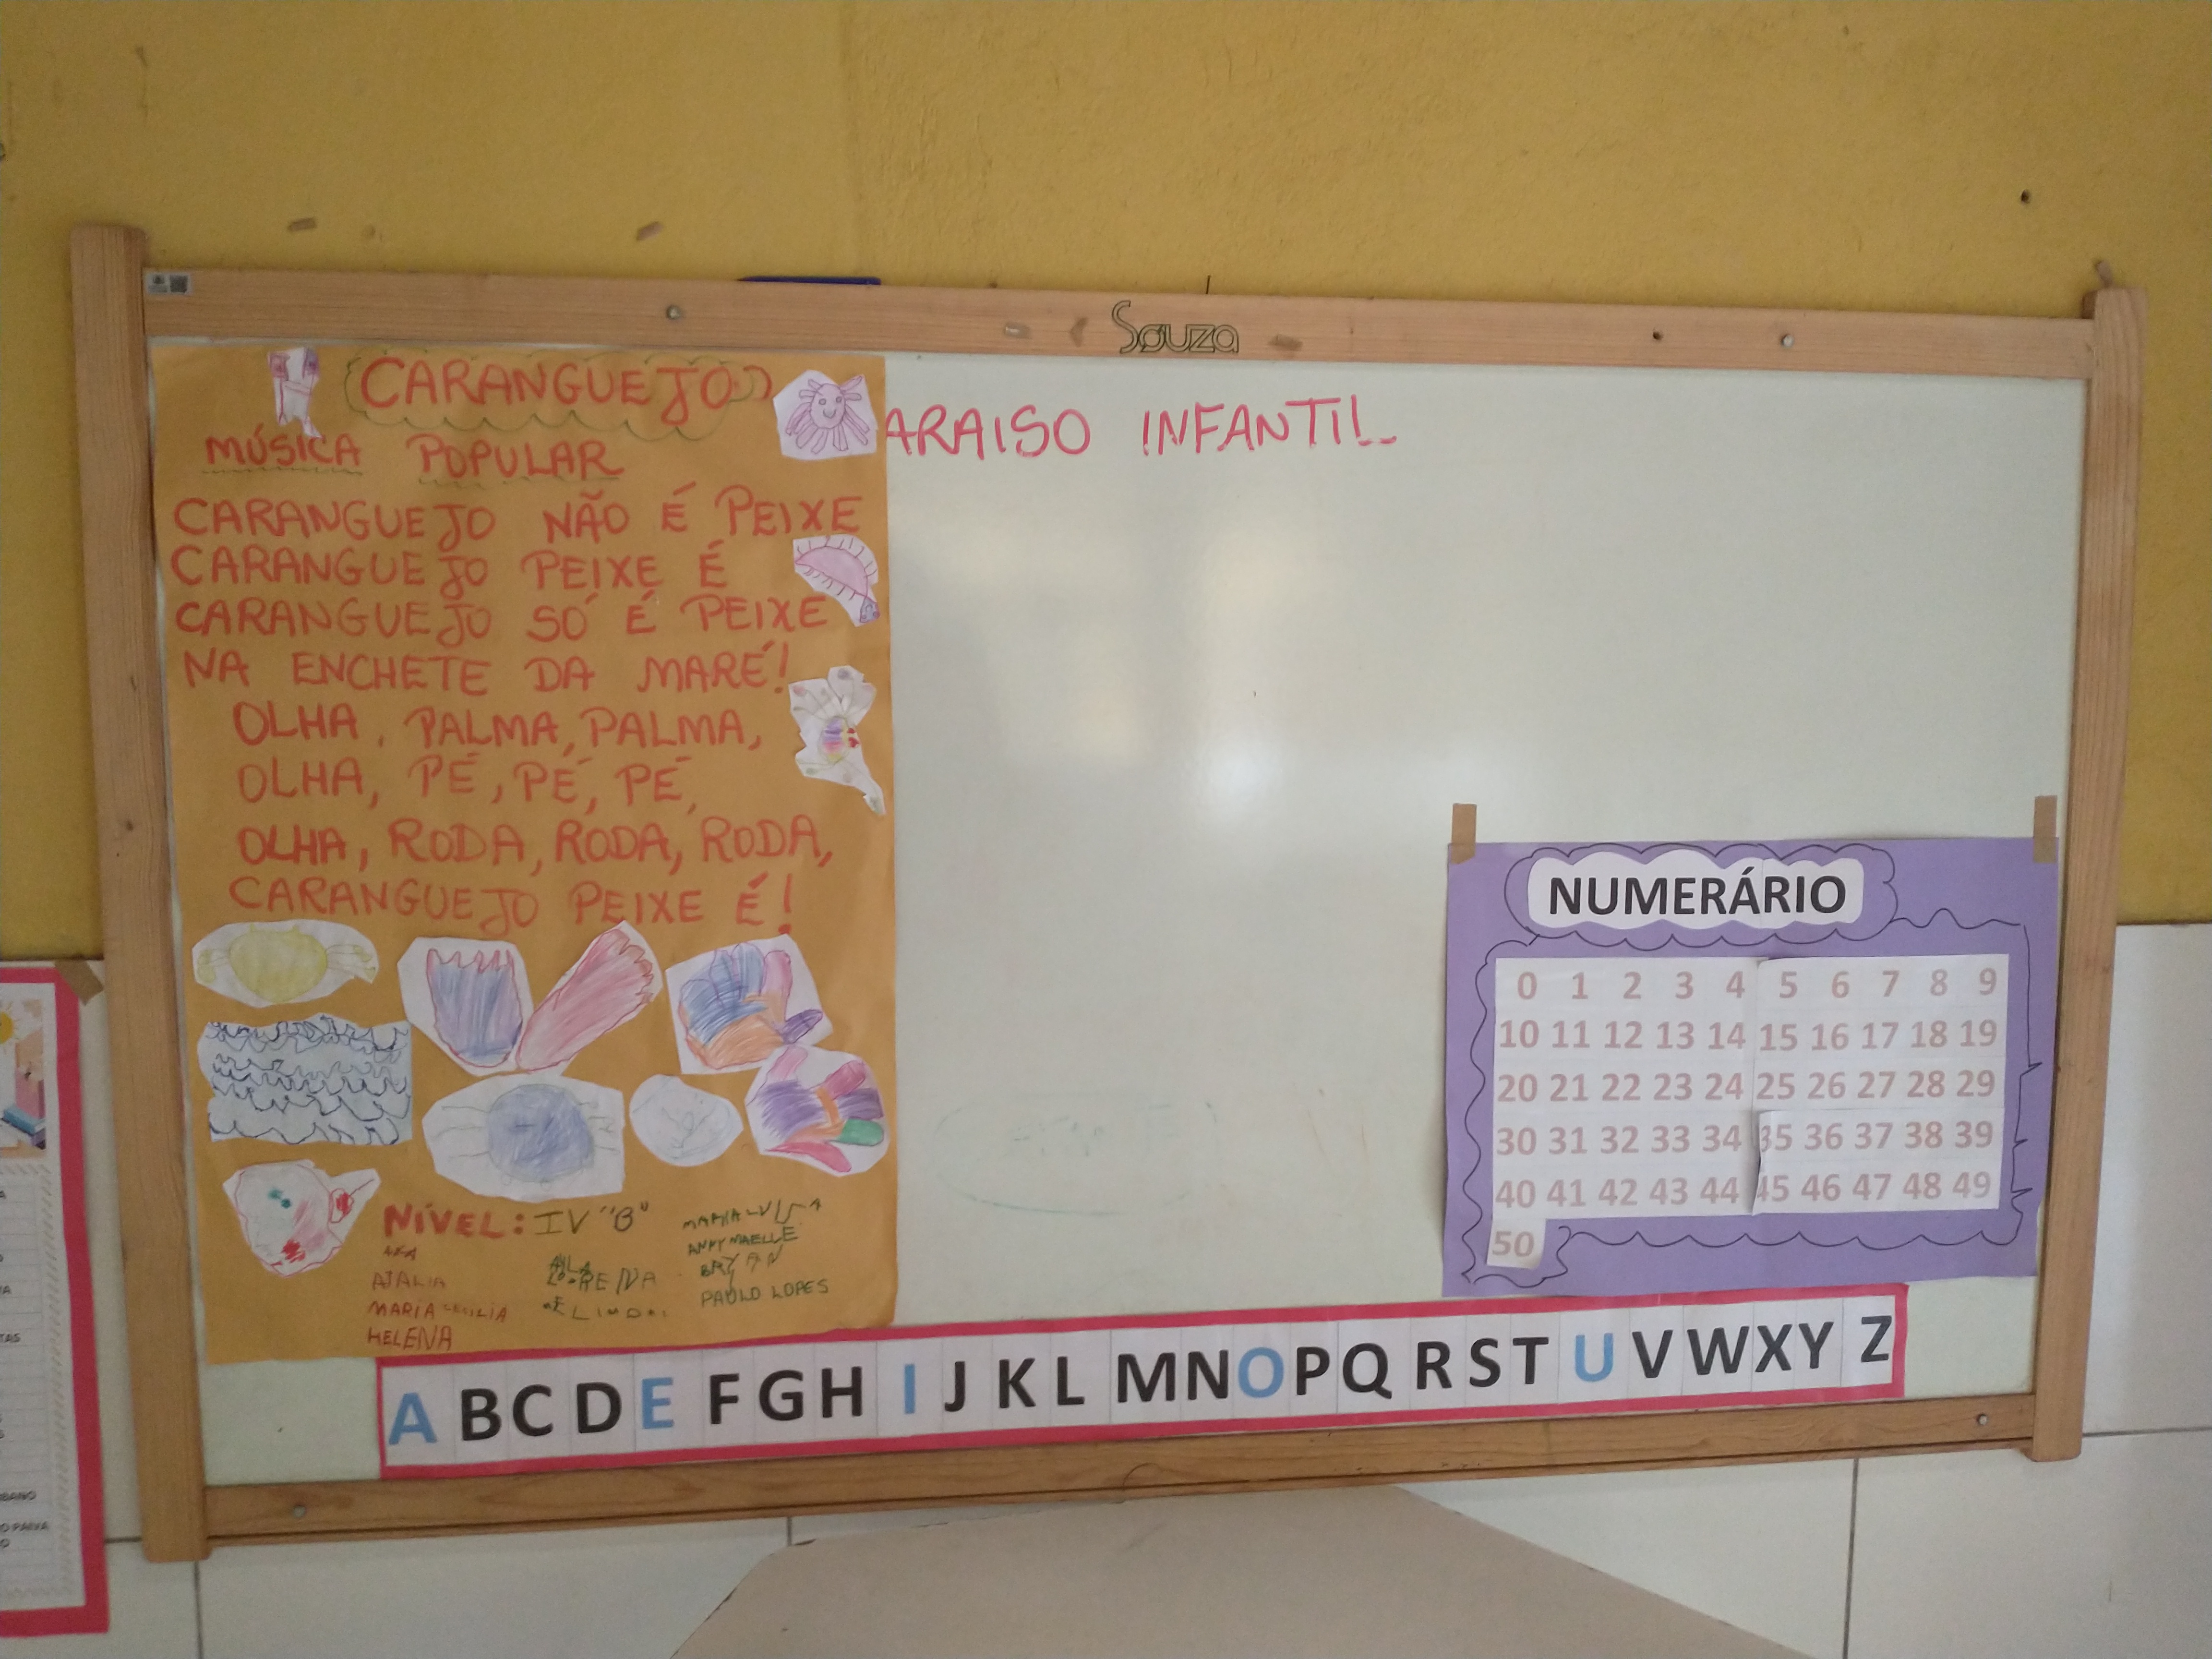 Souza
CARANGUEJO
MÚSICA POPULAR
CARANGUEJO NÃO É PEIXE
CARANGUEJO PEIXE É
CARANGUEJO SÓ É PEIXE
NA ENCHETE DA MARÉ!
OLHA, PALMA, PALMA,
OLHA, PÉ, PÉ, PÉ,
OLHA, RODA, RODA, RODA,
CARANGUEJO PEIXE É!
NÍVEL: IV "B"
AJALIA
MARIA CECILIA
HELENA
MARIA LUISA
ANNY MAELLE
BRYAN
PAULO LOPES
ARAISO INFANTIL
NUMERÁRIO
0 1 2 3 4 5 6 7 8 9
10 11 12 13 14 15 16 17 18 19
20 21 22 23 24 25 26 27 28 29
30 31 32 33 34 35 36 37 38 39
40 41 42 43 44 45 46 47 48 49
50
A B C D E F G H I J K L M N O P Q R S T U V W X Y Z